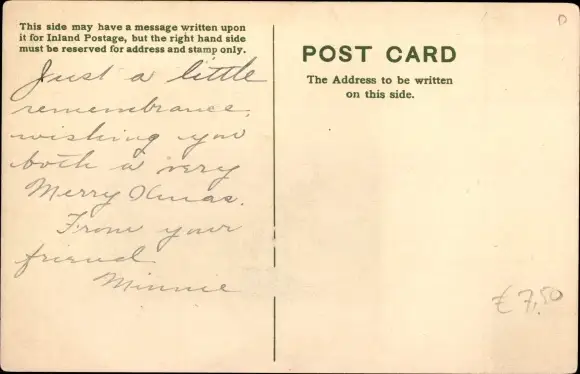 This side may have a message written upon
it for Inland Postage, but the right hand side
must be reserved for address and stamp only.
Just a little
remembrance,
wishing you
both a very
Merry Xmas.
From your
friend
Minnie
POST CARD
The Address to be written
on this side.
D
€ 7,50